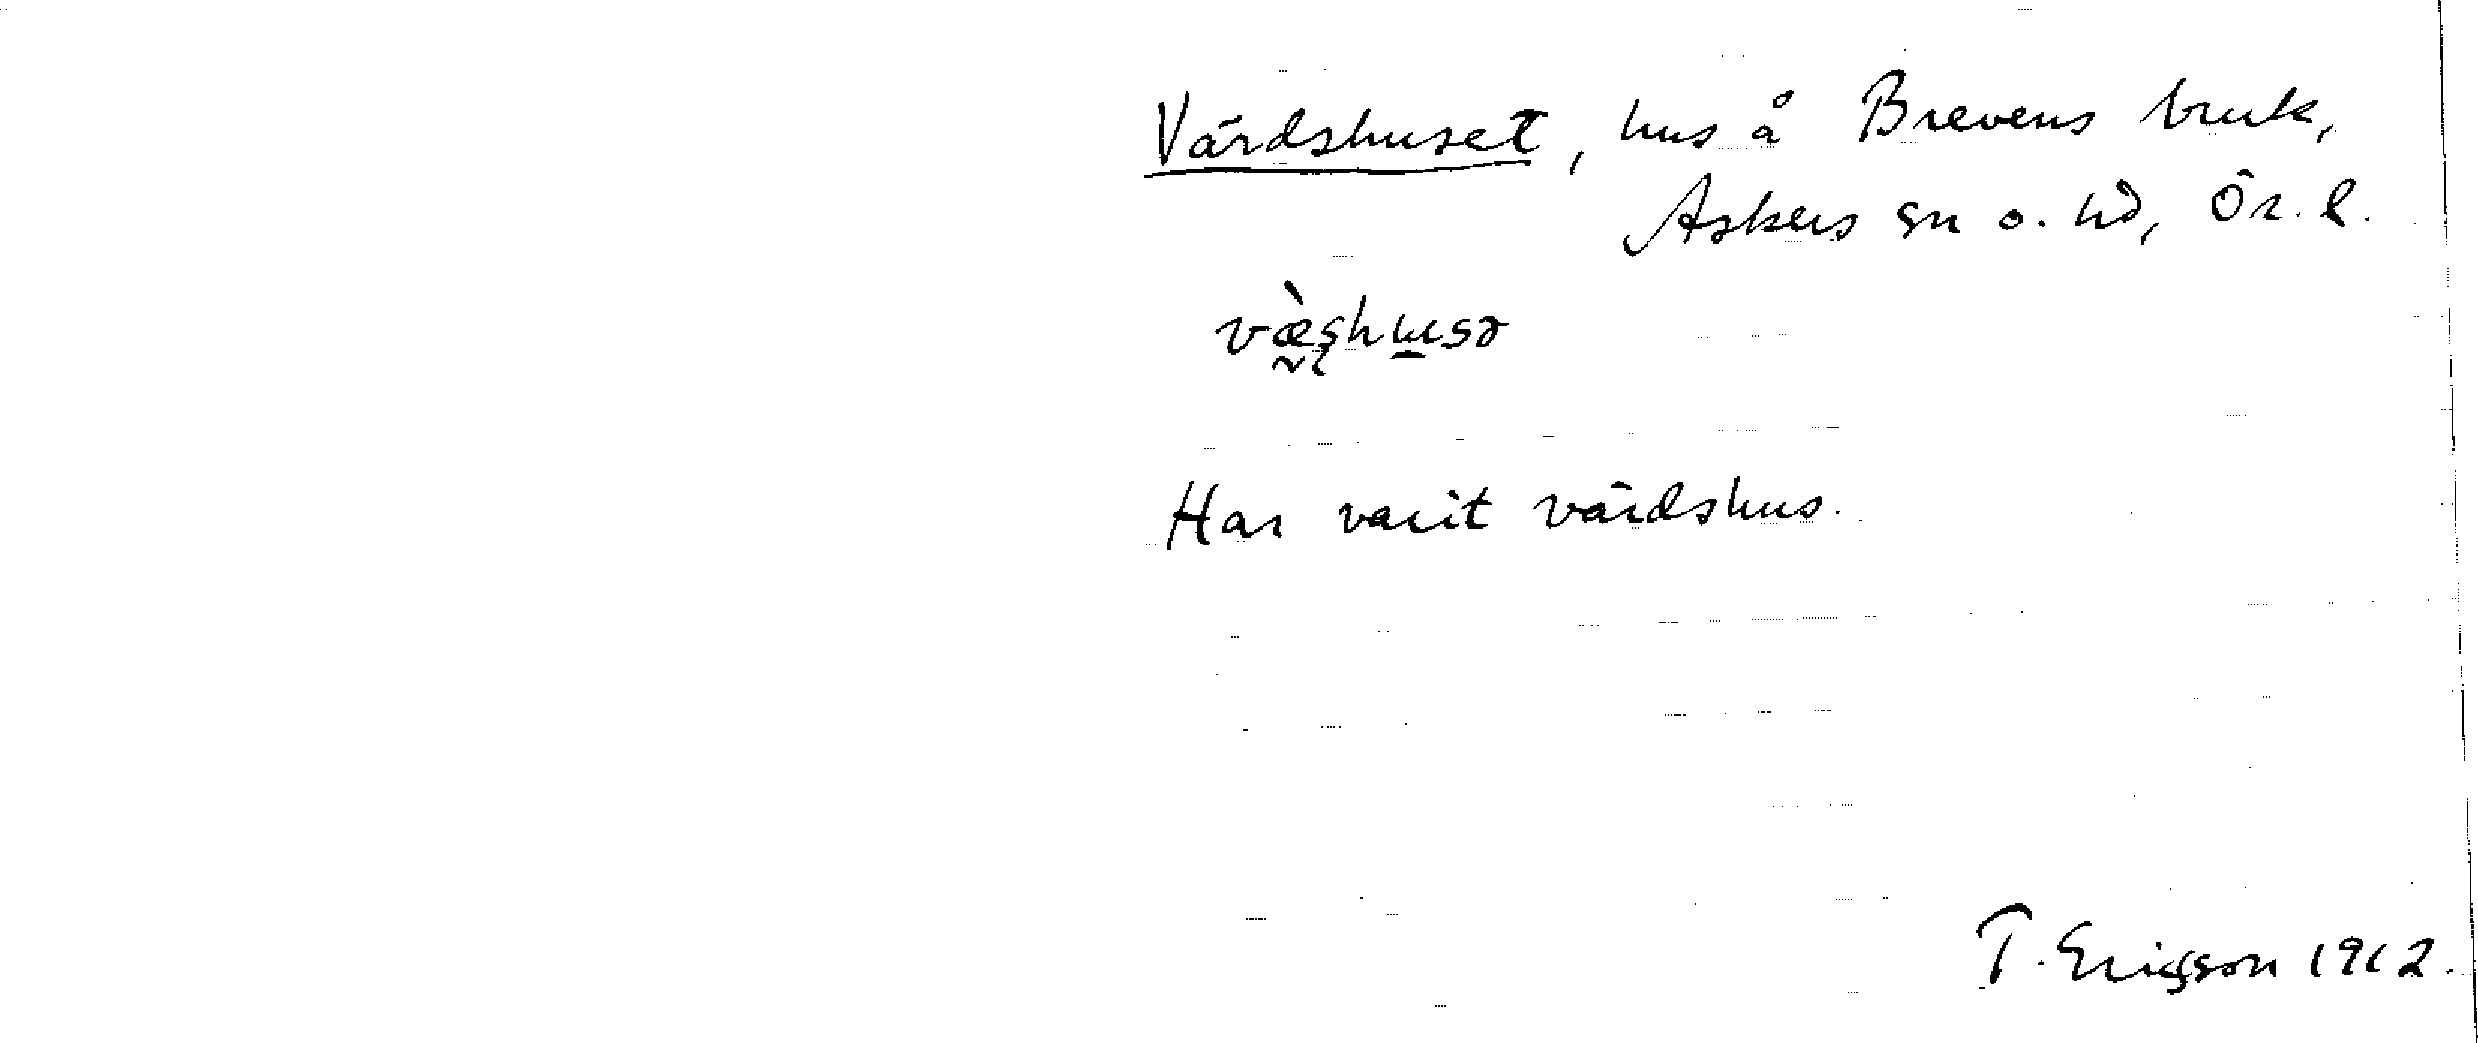 Värdshuset, hus å Brevens bruk,
Askers sn o. hd, Ör. l.
væ̀ʂhusə
Har varit värdshus.
T. Ericsson 1912.